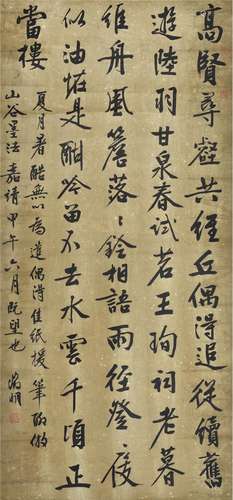 高賢尋壑共經丘偶得追從續舊
遊陸羽甘泉春試茗王珣祠老暮
維舟風簷落々鈴相語雨徑登々屐
似油恠是酣吟留不去水雲千頃正
當樓
夏月暑酷無以為遣偶得佳紙援筆聊倣
山谷墨法嘉靖甲午六月既望也 徵明